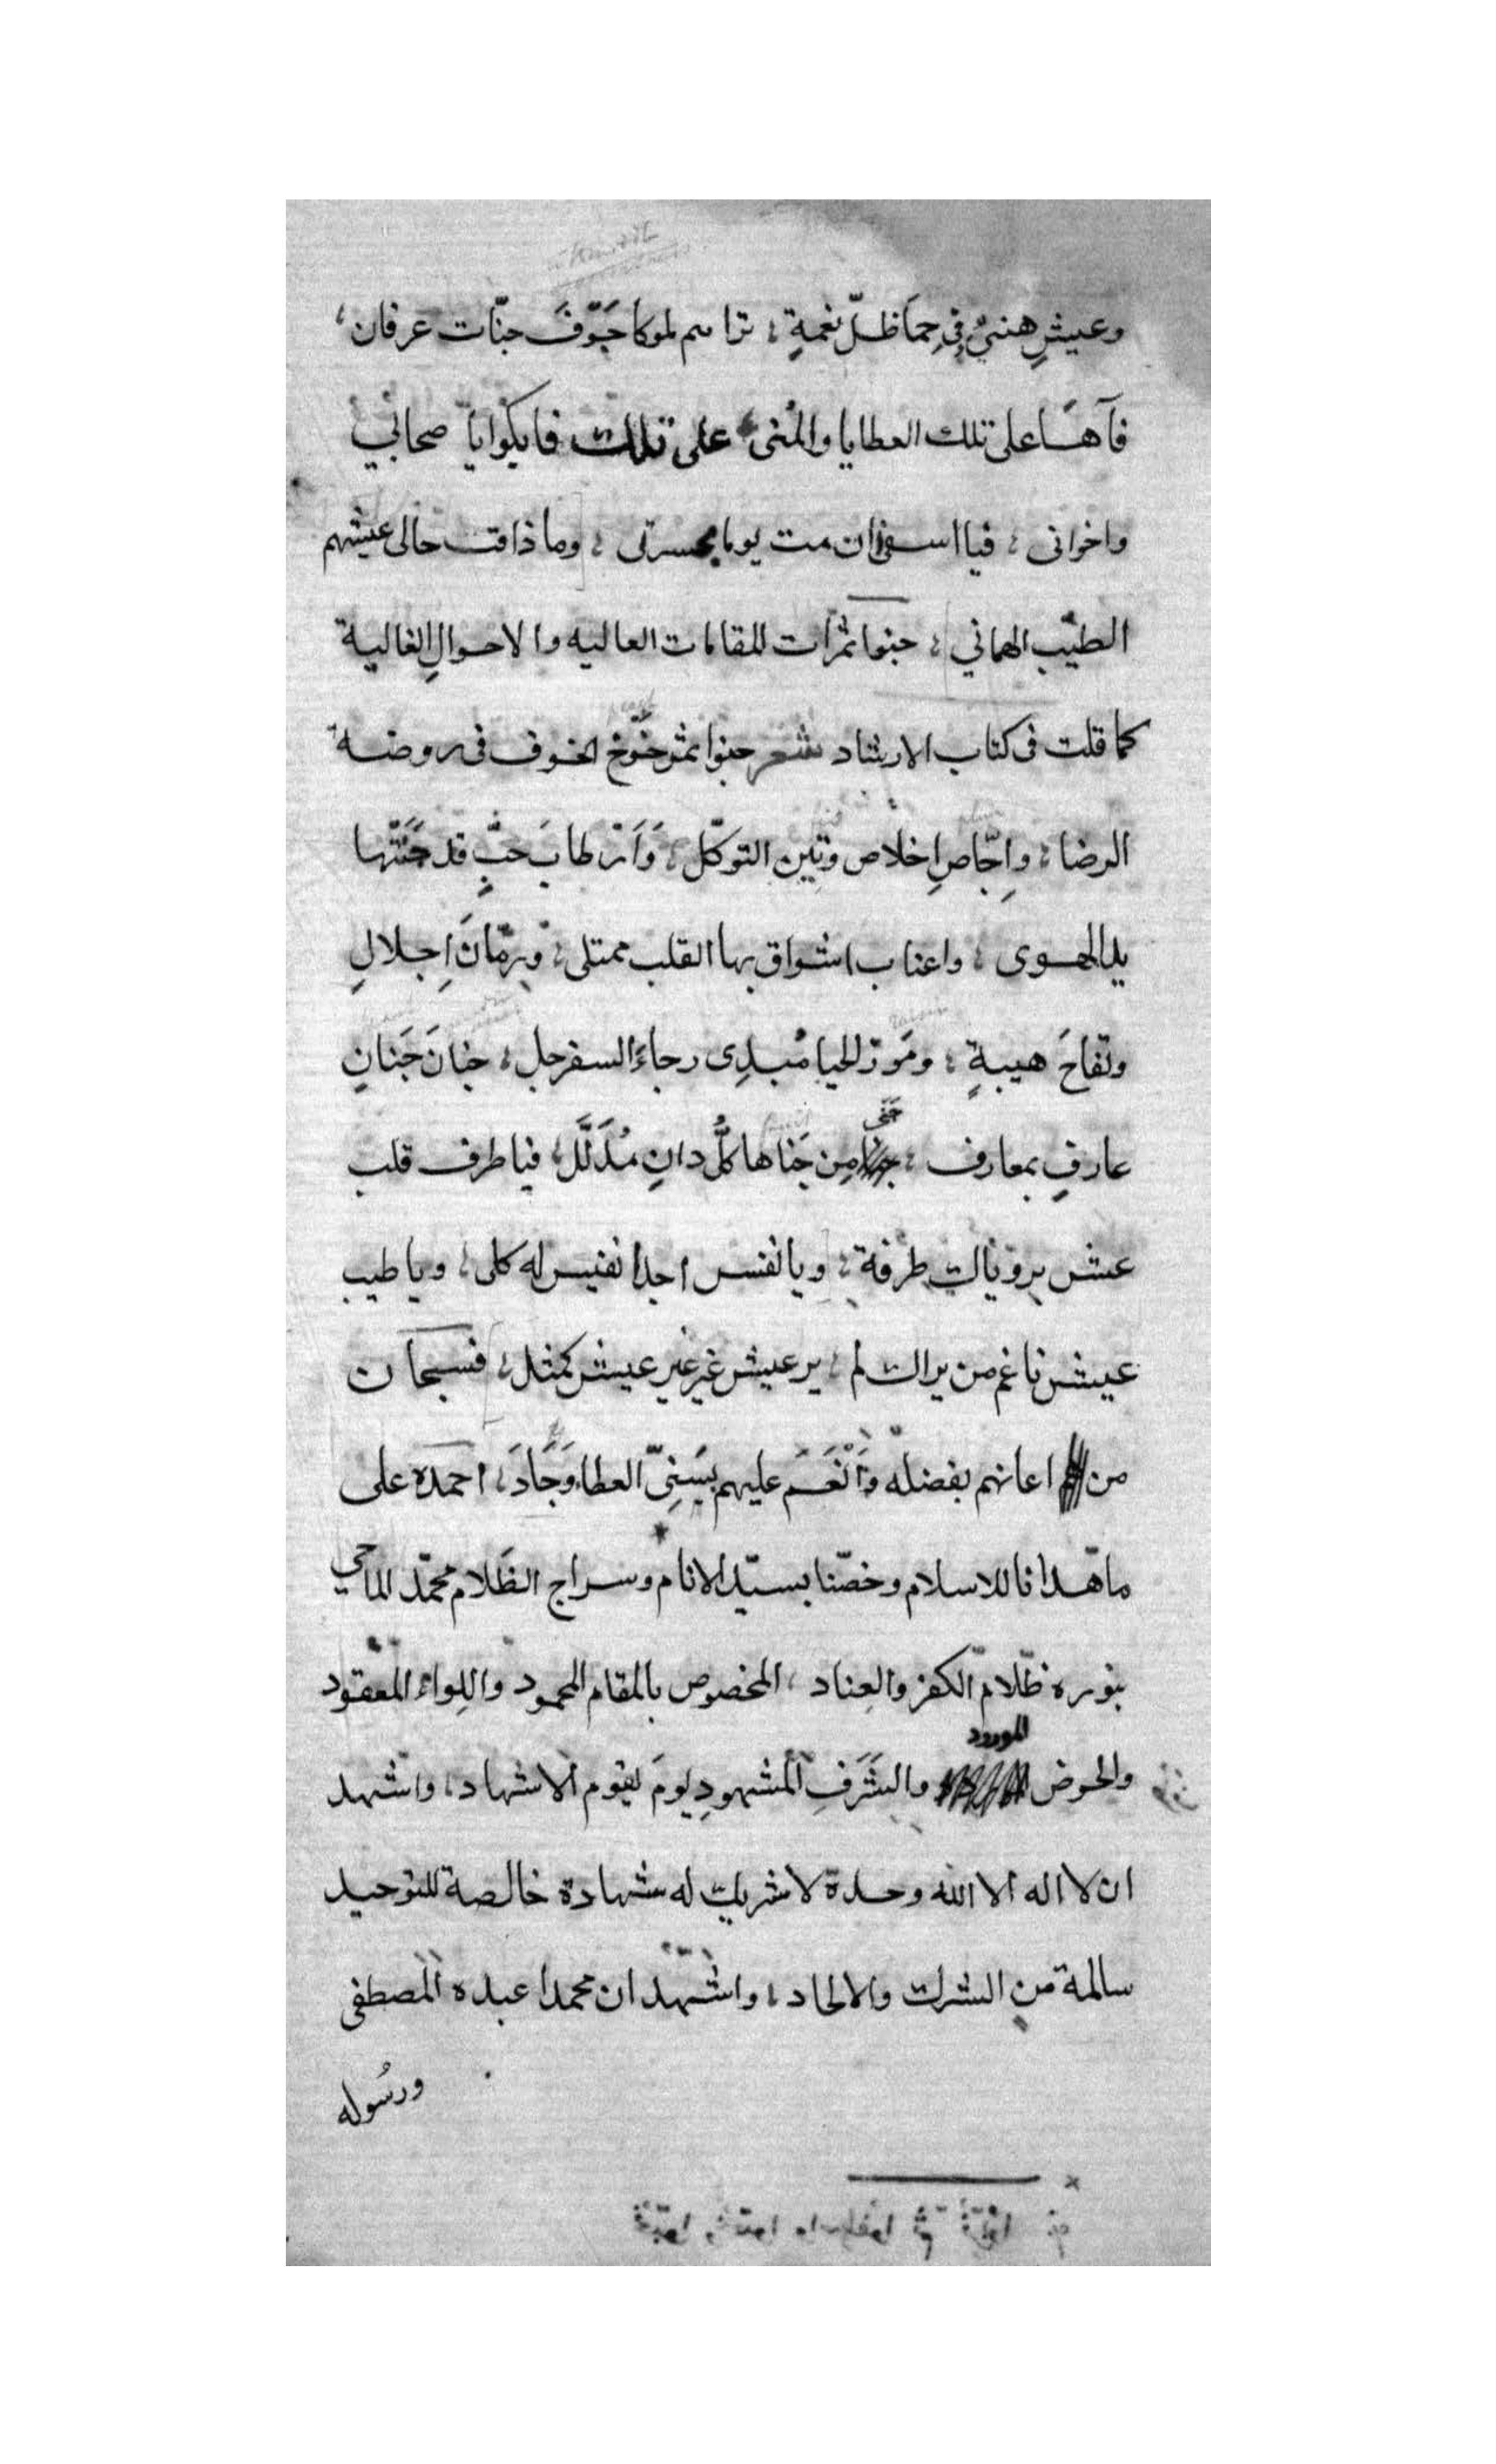 وعيشٍ هنيٍّ فِي حِمَا ظلّ نعمةٍ ؛ تراهم ملوكا جَوّفَ جنّات عرفان ،
فآهًا على تلك العطايا والمُنى ، على تلك فابكوا يا صحابي
واخوانى ؛ فيا اسفى ان مت يوما بحسرتى ؛ وما ذاقت حالى عيشهم
الطيّب الهاني ؛ جنوا ثمرات المقامات العاليه والاحوالِ الغالية
كما قلت فى كتاب الارشاد شعر جنوا ثمر خَوْخ الخوف فى روضة
الرضا ؛ واِجّاصِ اخلاص وتين التوكّل ؛ وَاَرْطابَ حبٍّ قد جَنَتْها
يد الهوى ؛ واعناب اشواق بها القلب ممتلى ؛ ورمّانَ اِجلالٍ
وتفاحَ هيبةٍ ؛ ومَوز الحيا مُبدِى رجاءَ السفرجل ؛ جنانَ جَنانِ
عارفٍ بمعارف ؛ جَنَى مِن جَناها كلُّ دانٍ مُدَلَّل ؛ فيا طرف قلب
عش برؤياك طرفة ؛ ويا نفس اجدا نفيس له كلى ؛ ويا طيب
عيش ناغم من يراك لم ؛ ير عيش غير غير عيش كمثل ؛ فسبحان
من اعانهم بفضله وَأَنْعَمَ عليهم بِسَنِيّ العطا وَجَادَ ، احمده على
ما هدانا للاسلام وخصّنا بسيّد الانام وسراج الظَلام محمّد الماحي
بنوره ظَلامَ الكفر والعِناد ، المخصوص بالمقام المحمود واللِواء المعقود
والحوض المورود والشَرَفِ المشهودِ يومَ يقوم الاشهاد ، واشهد
ان لا اله الا الله وحده لا شريك له شهادة خالصة للتوحيد
سالمة من الشرك والالحاد ؛ واشهد ان محمدا عبده المصطفى
ورسُوله